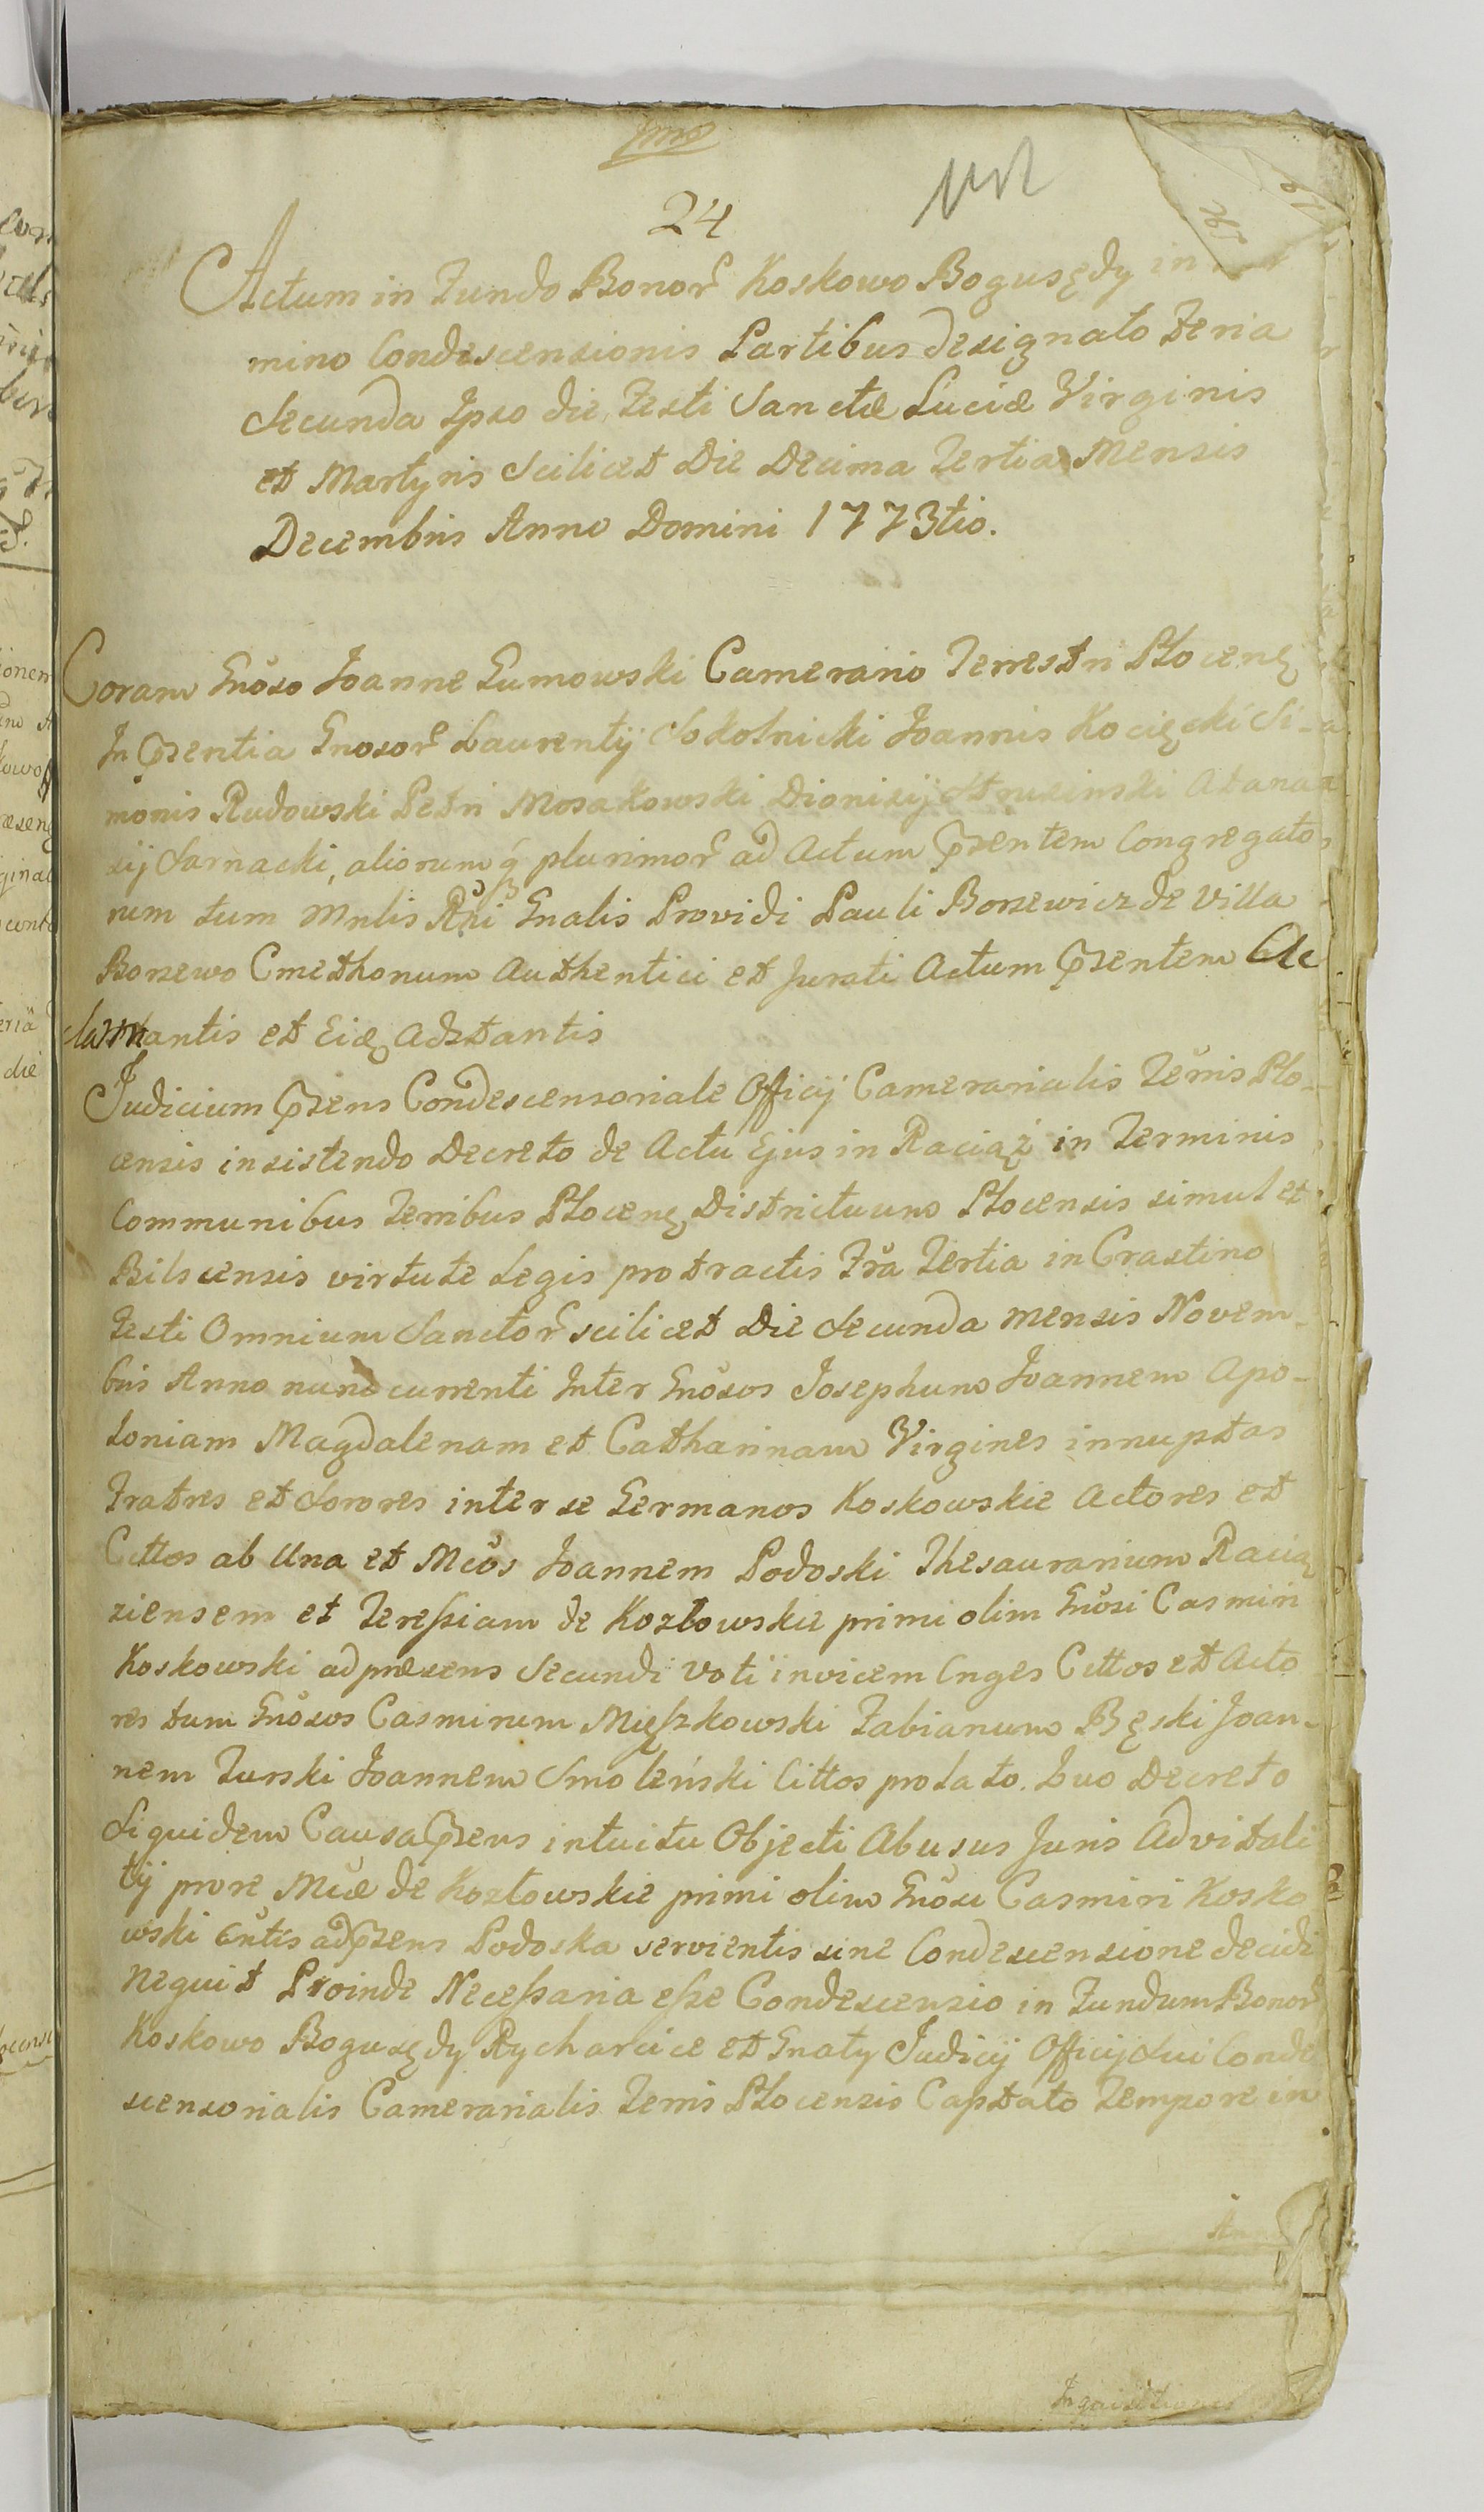 24
Actum in Fundo Bonor̃ Koskowo Bogusędy in
mino Condescensionis Partibus designato Feria
Secunda Ipso die Festi Sanctæ Luciæ Virginis
et Martyris Scilicet Die Decima Tertia Mensis
Decembris Anno Domini 1773tio.
Coram Gnõso Joanne Gumowski Camerario Terrestri Płocenę
In Pñzentia Gnosor̃ Laurentÿ Sokolnicki Joannis Kocięcki Si-
monis Rudowski Petri Mosakowski Dionisÿ Strusinski Atana
sÿ Sarnacki, aliorumq́ plurimor̃ ad Actum Pñzentem Congregato
rum tum Mnlis Rñi Gnalis Providi Pauli Borzewicz de Villa
Borzewo Cmethonum Authentici et Jurati Actum Pñzentem Ac
clamantis et Eię Adstantis
Judicium Pñzens Condescensoriale Officÿ Camerarialis Terris Plo-
censis insistendo Decreto de Actu Ejus in Raciąż in Terminis
Communibus Terribus Płocenę Districtuum Płocensis simul et
Bilscensis virtute Legis protractis Fr̃a Tertia in Crastino
Festi Omnium Sanctor̃ scilicet Die Secunda mensis Novem-
bris Anno nunc currenti Inter Gnõsos Josephum Joannem Apo-
loniam Magdalenam et Catharinam Virgines innuptas
Fratres et Sorores inter se Germanos Koskowskie Actores et
Cittos ab Una et Mcõs Joannem Podoski Thesaurarium Racią
ziensem et Teressiam de Kozłowskie primi olim Gnõsi Casmiri
Koskowski ad præsens Secundi voti invicem Cnges Cittos et Acto
res tum Gnõsos Casmirum Mięszkowski Fabianum Bęski Joan-
nem Turski Joannem Smoleński Cittos prolato. Quo Decreto
Siquidem Causa Pñzens intuitu Objecti Abusus Juris Advitali
tÿ prore Mcæ de Kozłowskie primi olim Gnõsi Casmiri Kosko
wski Cntis ad Pñzens Podoska servientis sine Condescensione decidi
Nequit Proinde Necessaria esse Condescensio in Fundum Bonor̃
Koskowo Bogusędy Rycharcice et Gnaty Judicÿ Officÿ Sui Conde
scensorialis Camerarialis Terris Płocensis Captato Tempore in
Inquisitiones